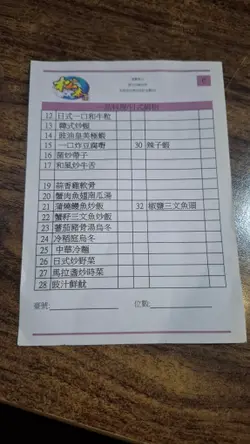 12 日式一口和牛粒
13 韓式炒飯
14 豉油皇美極蝦
15 一口炸豆腐粿 30 辣子蝦
16 菌炒帶子
17 和風炒牛舌
19 蒜香雞軟骨
20 蟹肉魚翅南瓜湯
21 蒲燒鰻魚炒飯 32 椒鹽三文魚頭
22 蟹籽三文魚炒飯
23 蕃茄豬骨湯烏冬
24 冷稻庭烏冬
25 中華冷麵
26 日式炒野菜
27 馬拉盞炒時菜
28 豉汁鮮魷
臺號: 位數: